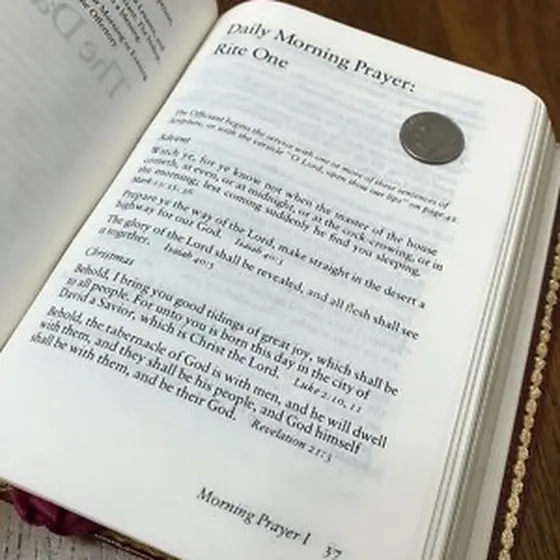 The Da
Daily Morning Prayer:
Rite One
The Officiant begins the service with one or more of these sentences of
Scripture, or with the versicle "O Lord, open thou our lips" on page 42.
Advent
Watch ye, for ye know not when the master of the house
cometh, at even, or at midnight, or at the cock-crowing, or in
the morning, lest coming suddenly he find you sleeping.
Mark 13:35, 36
Prepare ye the way of the Lord, make straight in the desert a
highway for our God. Isaiah 40:3
The glory of the Lord shall be revealed, and all flesh shall see
it together. Isaiah 40:5
Christmas
Behold, I bring you good tidings of great joy, which shall be
to all people. For unto you is born this day in the city of
David a Savior, which is Christ the Lord. Luke 2:10, 11
Behold, the tabernacle of God is with men, and he will dwell
with them, and they shall be his people, and God himself
shall be with them, and be their God. Revelation 21:3
Morning Prayer I 37